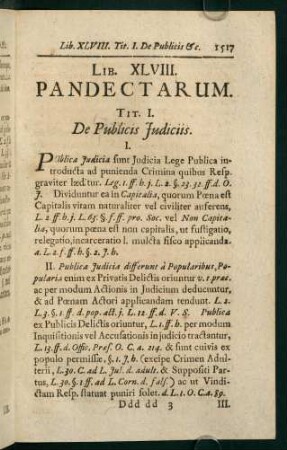 Lib. XLVIII. Tit. I. De Publicis &c. 1517
LIB. XLVIII.
PANDECTARUM.
TIT. I.
De Publicis Judiciis.
I.
Publica Judicia sunt Judicia Lege Publica in-
troducta ad punienda Crimina quibus Resp.
graviter læditur. Leg. 1. ff. h. j. L. 2. §. 23. 32. ff. d. O.
J. Dividuntur ea in Capitalia, quorum Pœna est
Capitalis vitam naturaliter vel civiliter auferens,
L. 2. ff. h. j. L. 65. §. f. ff. pro. Soc. vel Non Capita-
lia, quorum pœna est non capitalis, ut fustigatio,
relegatio, incarceratio l. mulcta fisco applicanda.
a. L. 2. ff. h. §. 2. J. h.
II. Publica Judicia differunt à Popularibus, Po-
pularia enim ex Privatis Delictis oriuntur v. 1 præc.
ac per modum Actionis in Judicium deducuntur,
& ad Pœnam Actori applicandam tendunt. L. 2.
L. 3. §. 1. ff. d. pop. act. j. L. 12. ff. d. V. S. Publica
ex Publicis Delictis oriuntur, L. 1. ff. h. per modum
Inquisitionis vel Accusationis in judicio tractantur,
L. 13. ff. d. Offic. Præf. O. C. a. 214. & sunt cuivis ex
populo permissæ, §. 1. J. h. (excipe Crimen Adul-
terii, L. 30. C. ad L. Jul. d. adult. & Suppositi Par-
tus, L. 30. §. 1 ff. ad L. Corn. d. fals.) ac ut Vindi-
ctam Resp. statuat puniri solet. d. L. 1 O. C. a. 89.
Ddd dd 3 III.